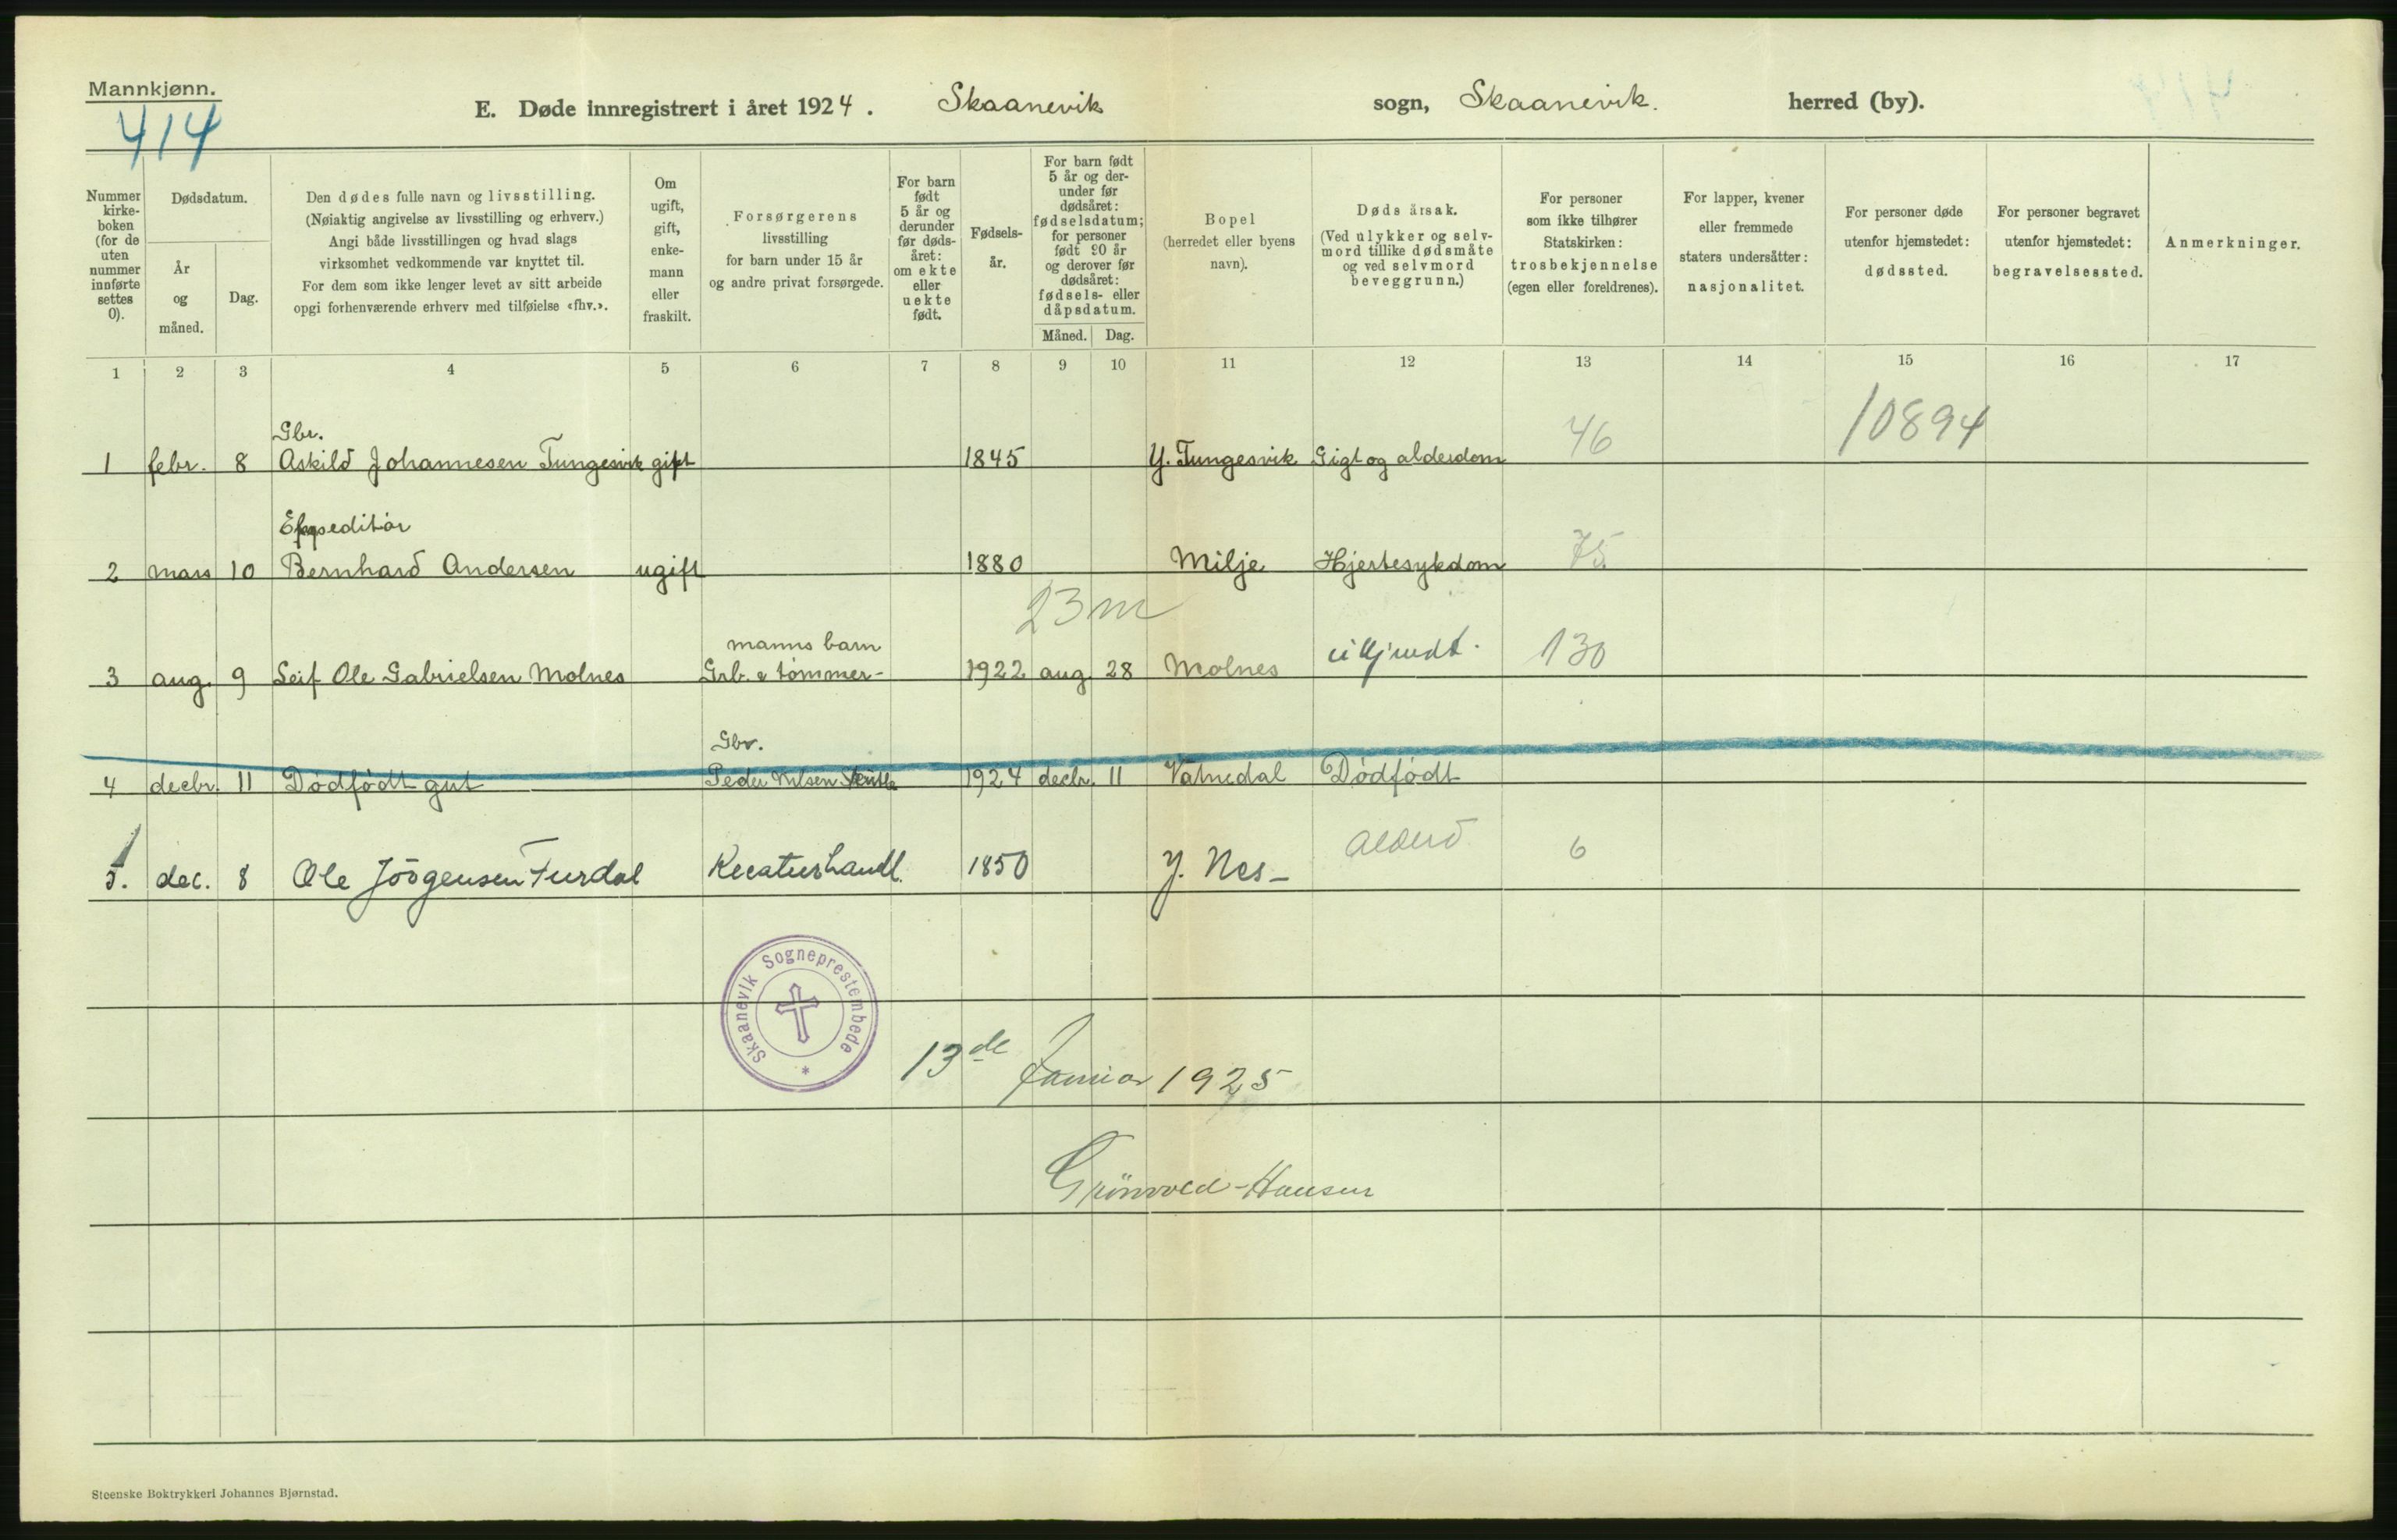 Mannkjønn.
414
E. Døde innregistrert i året 1924. Skaanevik sogn, Skaanevik. herred (by).
Nummer kirke-boken (for de uten nummer innførte settes 0).
Dødsdatum.
År og måned.
Dag.
Den dødes fulle navn og livsstilling.
(Nøiaktig angivelse av livsstilling og erhverv.)
Angi både livsstillingen og hvad slags
virksomhet vedkommende var knyttet til.
For dem som ikke lenger levet av sitt arbeide
opgi forhenværende erhverv med tilføielse «fhv.».
Om ugift, gift, enke-mann eller fraskilt.
Forsørgerens
livsstilling
for barn under 15 år
og andre privat forsørgede.
For barn født 5 år og derunder før døds-året: om ekte eller uekte født.
Fødsels-år.
For barn født 5 år og der-under før dødsåret: fødselsdatum; for personer født 90 år og derover før dødsåret: fødsels- eller dåpsdatum.
Måned. Dag.
Bopel
(herredet eller byens
navn).
Døds årsak.
(Ved ulykker og selv-
mord tillike dødsmåte
og ved selvmord
beveggrunn.)
For personer
som ikke tilhører
Statskirken:
trosbekjennelse
(egen eller foreldrenes).
For lapper, kvener
eller fremmede
staters undersåtter:
nasjonalitet.
For personer døde
utenfor hjemstedet:
dødssted.
For personer begravet
utenfor hjemstedet:
begravelsessted.
Anmerkninger.
1 2 3 4 5 6 7 8 9 10 11 12 13 14 15 16 17
Gbr.
1 febr. 8 Askild Johannesen Tungesvik gift 1845 Y. Tungesvik Gigt og alderdom 46 10894
Ekspeditør
2 mars 10 Bernhard Andersen ugift 1880 Milje Hjertesykdom 75
23 m
manns barn
3 aug. 9 Leif Ole Gabrielsen Molnes Grb. & tømmer- 1922 aug. 28 Molnes ukjendt. 130
Gbr.
4 decbr. 11 Dødfødt gut Peder Nilsen 1924 decbr. 11 Vatnedal Dødfødt
5. dec. 8 Ole Jörgensen Furdal Kreaturhandl. 1850 Y. Nes- alderd 6
Skaanevik Sogneprestembede *
13de Januar 1925
Grönvold-Hansen
Steenske Boktrykkeri Johannes Bjørnstad.